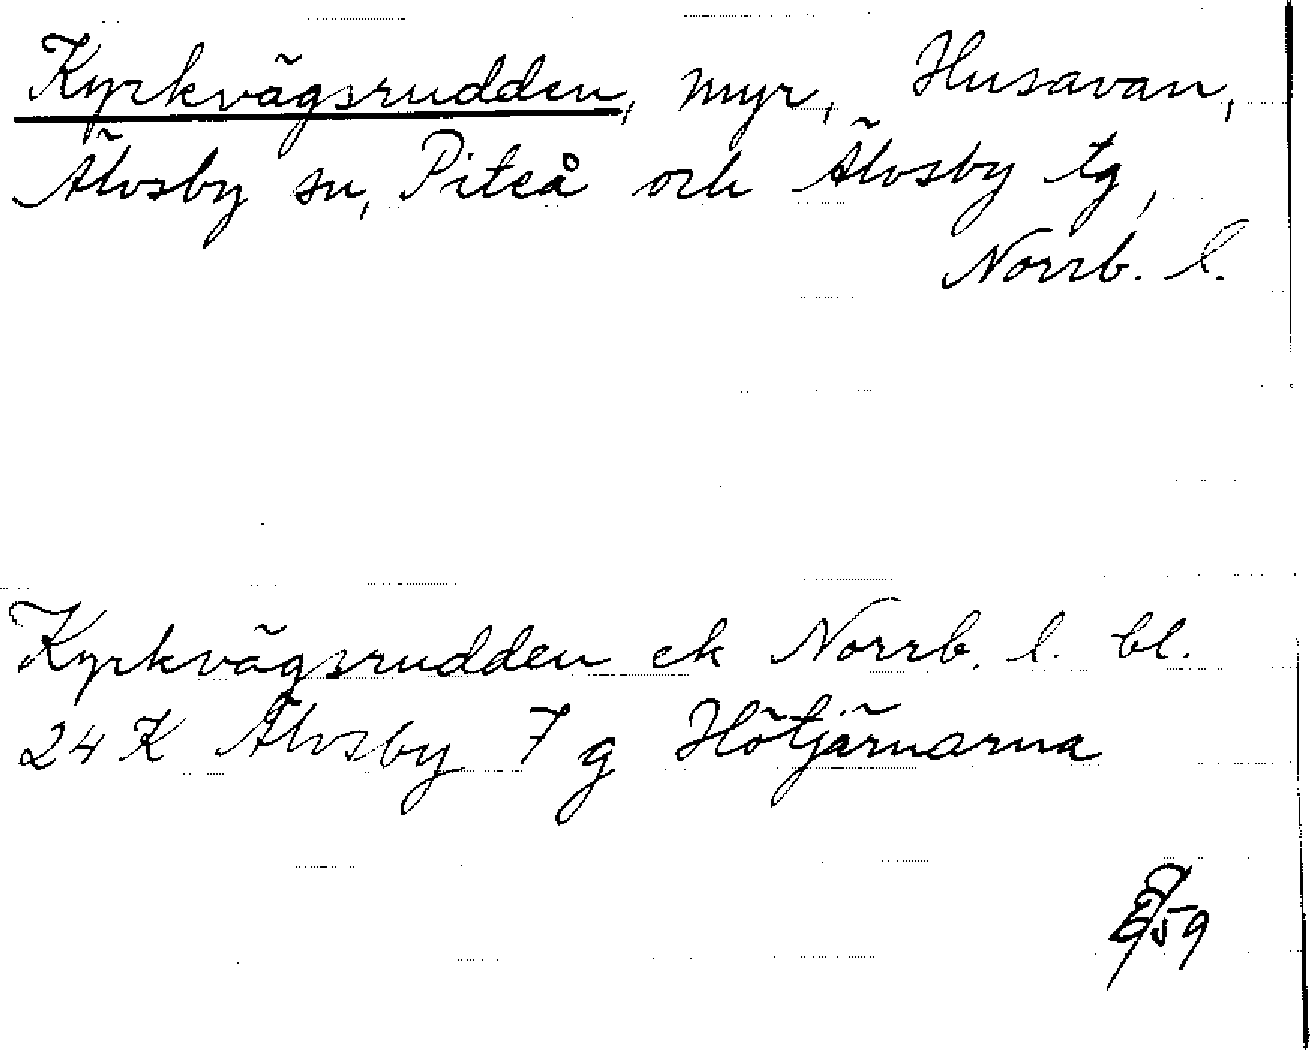 Kyrkvägsrudden, myr, Husavan,
Älvsby sn, Piteå och Älvsby tg,
Norrb. l.
Kyrkvägsrudden ek Norrb. l. bl.
24 K Älvsby 7 g Hötjärnarna
59